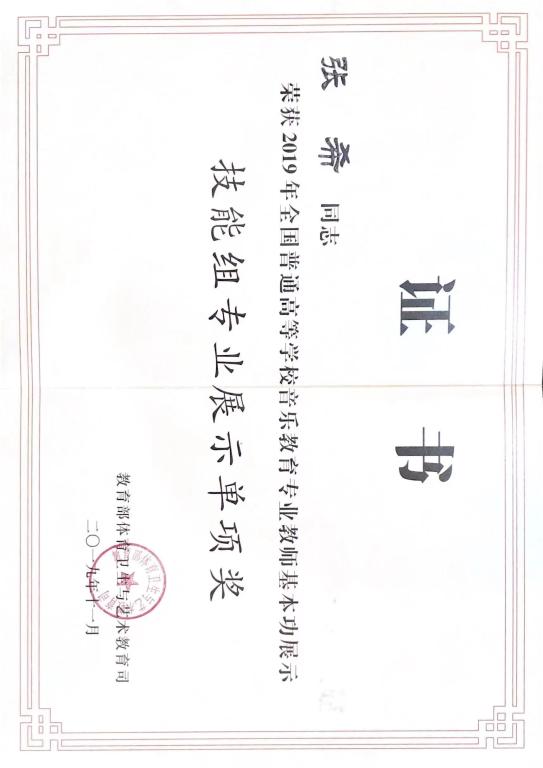 证书
张希 同志
荣获2019年全国普通高等学校音乐教育专业教师基本功展示
技能组专业展示单项奖
教育部体育卫生与艺术教育司
二〇一九年十一月